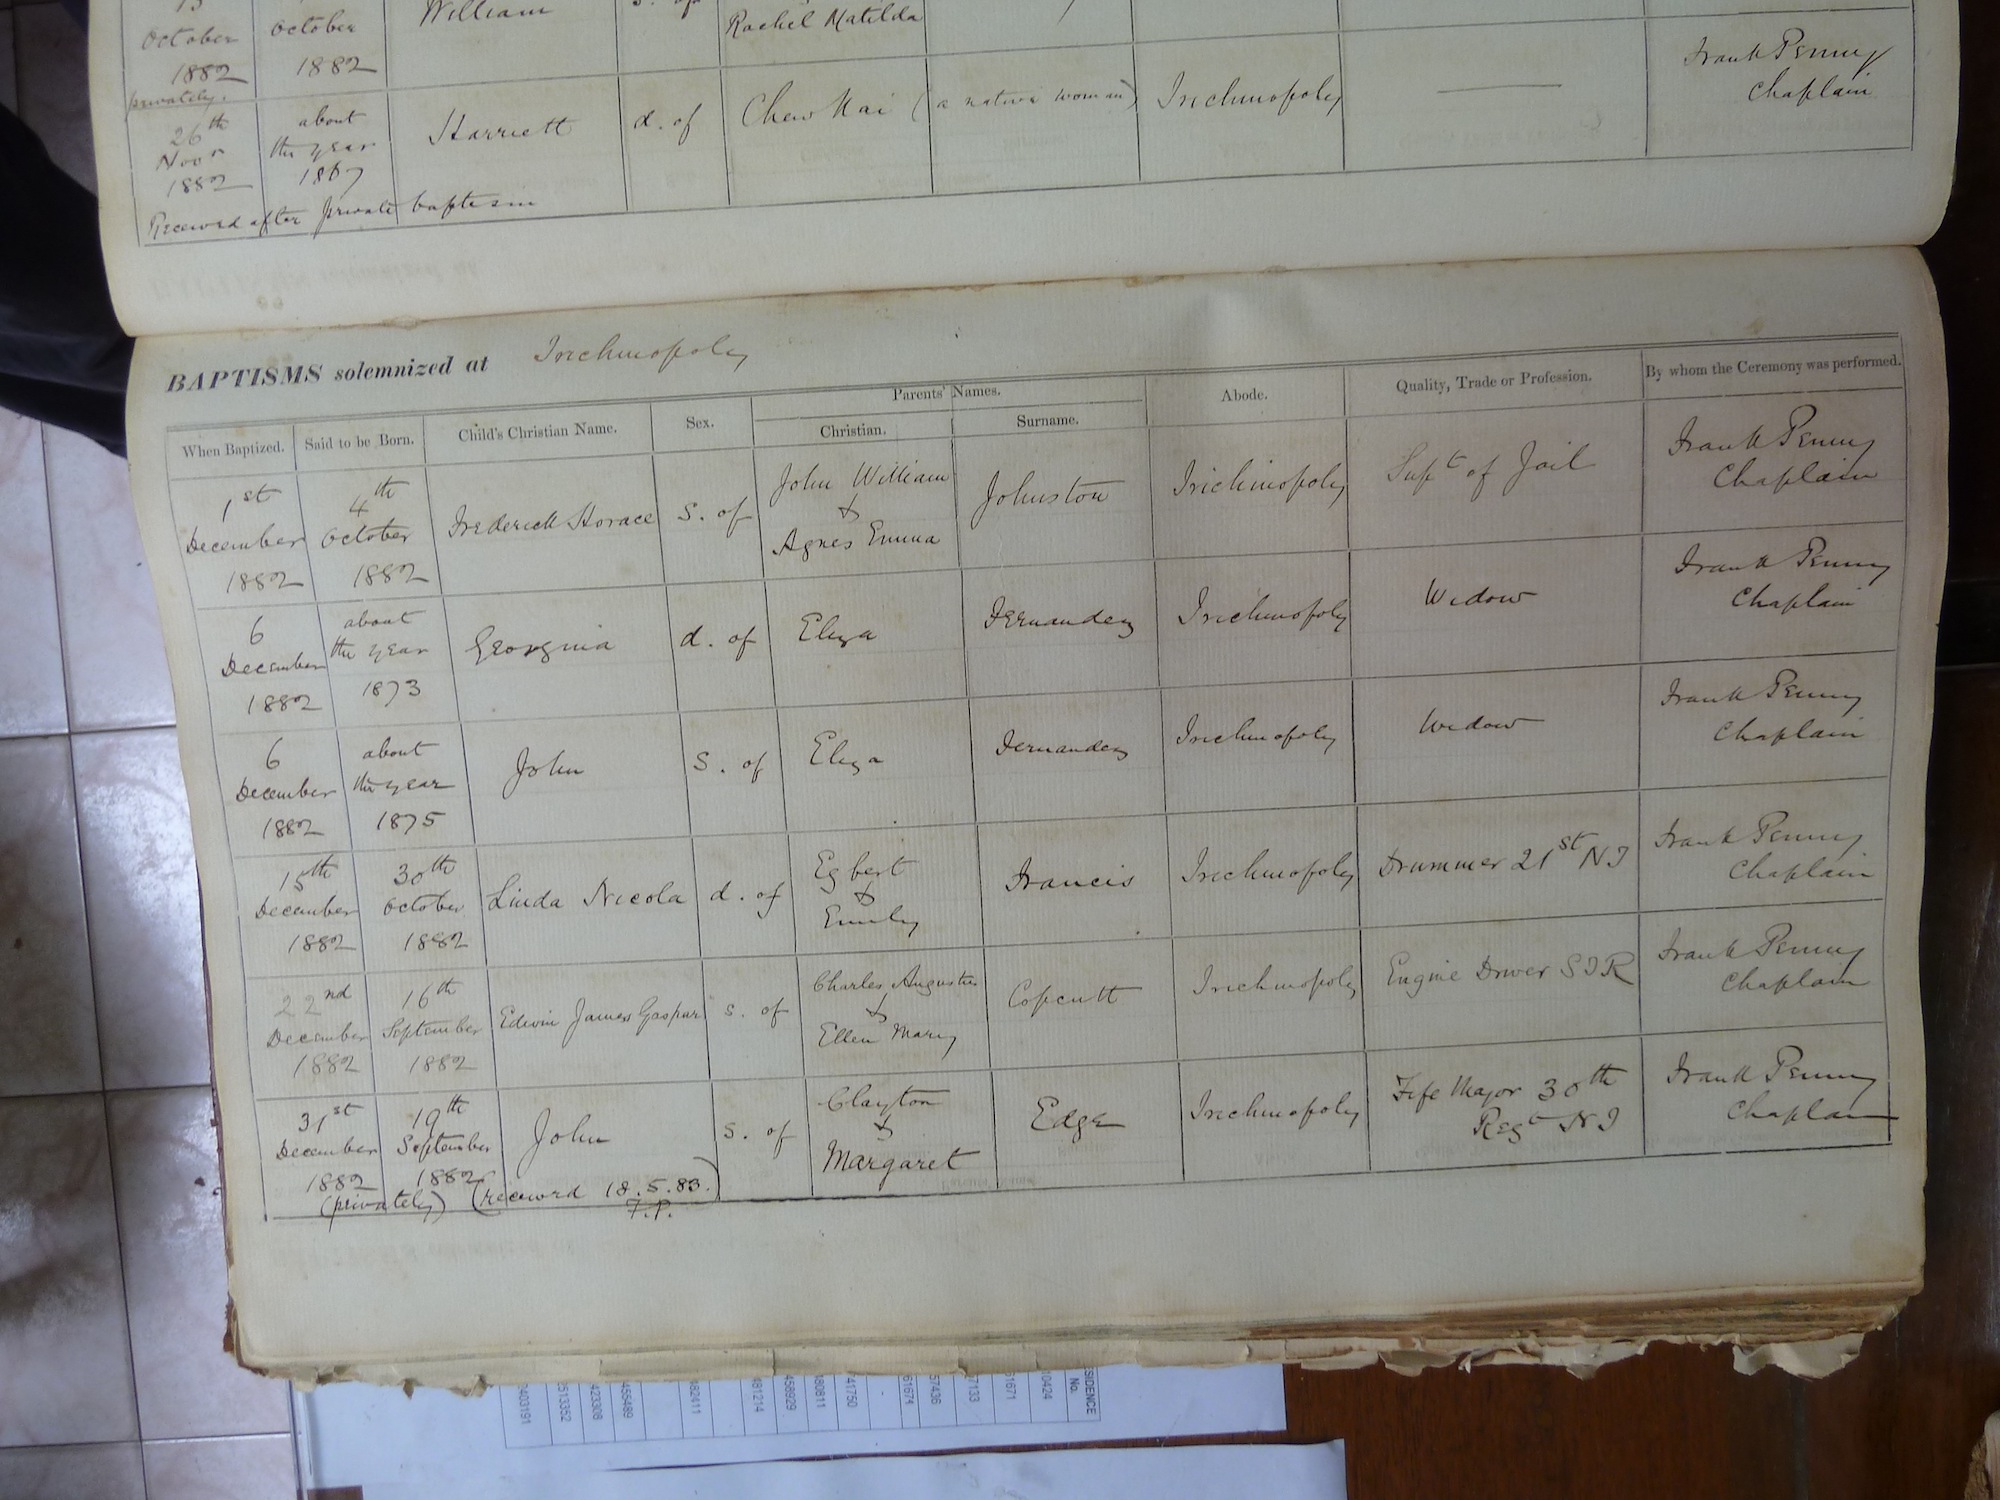 October October William
Rachel Matilda
1882 1882
privately.
26th about Harriett d. of Chew Kai (a native woman) Trichinopoly Frank Penny
Novr the year Chaplain
1882 1867
Received after private baptism
BAPTISMS solemnized at Trichinopoly
When Baptized. Said to be Born. Child's Christian Name. Sex. Parents' Names. Abode. Quality, Trade or Profession. By whom the Ceremony was performed.
Christian. Surname.
1st 4th John William Frank Penny
December October Frederick Horace s. of & Johnston Trichinopoly Supt of Jail Chaplain
1882 1882 Agnes Emma
6 about Frank Penny
December the year Georgina d. of Eliza Fernandez Trichinopoly Widow Chaplain
1882 1873
6 about Frank Penny
December the year John s. of Eliza Fernandez Trichinopoly Widow Chaplain
1882 1875
15th 30th Egbert Frank Penny
December October Linda Nicola d. of & Francis Trichinopoly Drummer 21st N I Chaplain
1882 1882 Emily
22nd 16th Charles Augustus Frank Penny
December September Edwin James Gaspar s. of & Copcutt Trichinopoly Engine Driver S I R Chaplain
1882 1882 Ellen Mary
31st 19th Clayton Fife Major 30th Frank Penny
December September John s. of & Edge Trichinopoly Regt N I Chaplain
1882 1882 Margaret
(privately) (received 18.5.83.)
F.P.
SIDENCE
No.
10424
61671
7133
57436
61674
-
41750
480811
458929
481214
482411
455489
423308
2513352
2403191